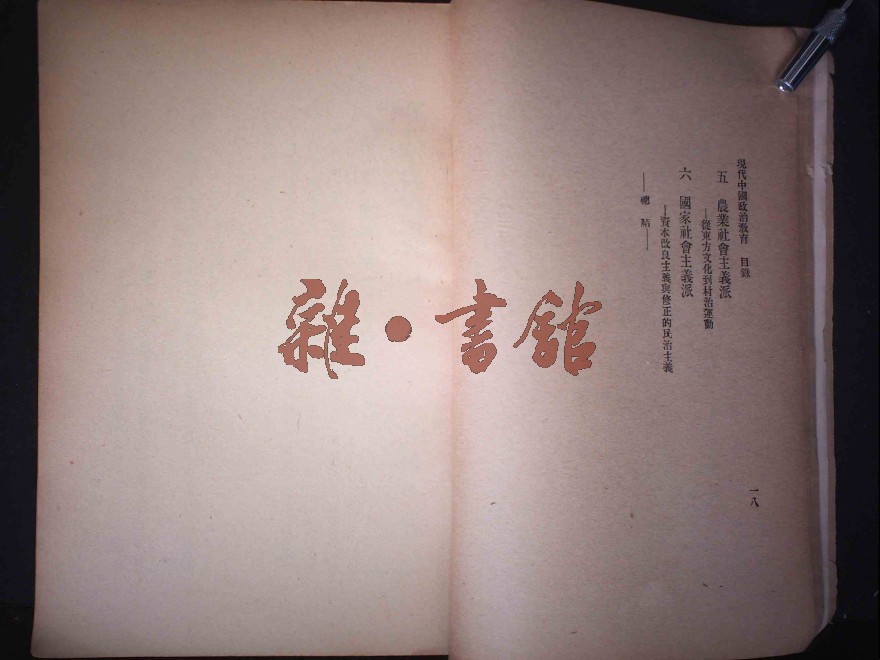 現代中國政治教育 目錄
五 農業社會主義派
——從東方文化到村治運動
六 國家社會主義派
——資本改良主義與修正的民治主義
——總結——
一八
雜•書館